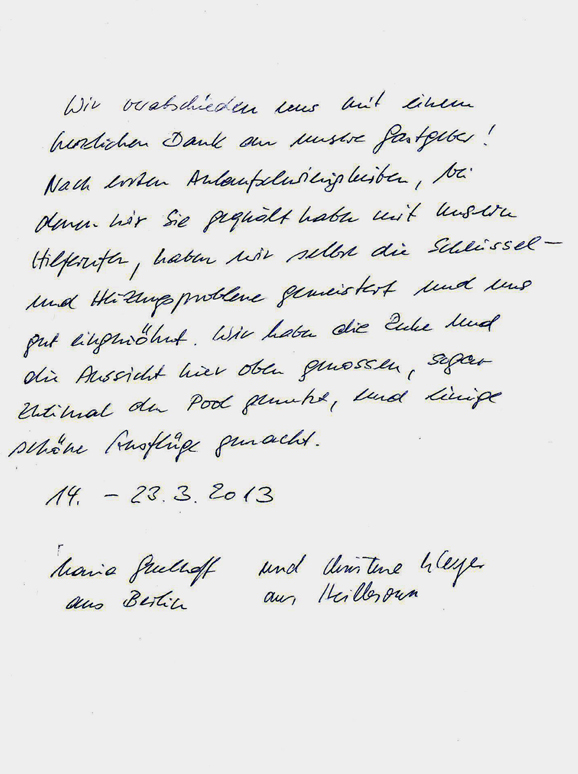 Wir verabschieden uns mit einem
herzlichen Dank an unsere Gastgeber!
Nach ersten Anlaufschwierigkeiten, bei
denen wir Sie gequält haben mit unseren
Hilferufen, haben wir selbst die Schlüssel-
und Heizungsprobleme gemeistert und uns
gut eingewöhnt. Wir haben die Ruhe und
die Aussicht hier oben genossen, sogar
zweimal den Pool genutzt, und einige
schöne Ausflüge gemacht.
14. - 23.3.2013
Maria und Christine
aus Berlin aus Heilbronn